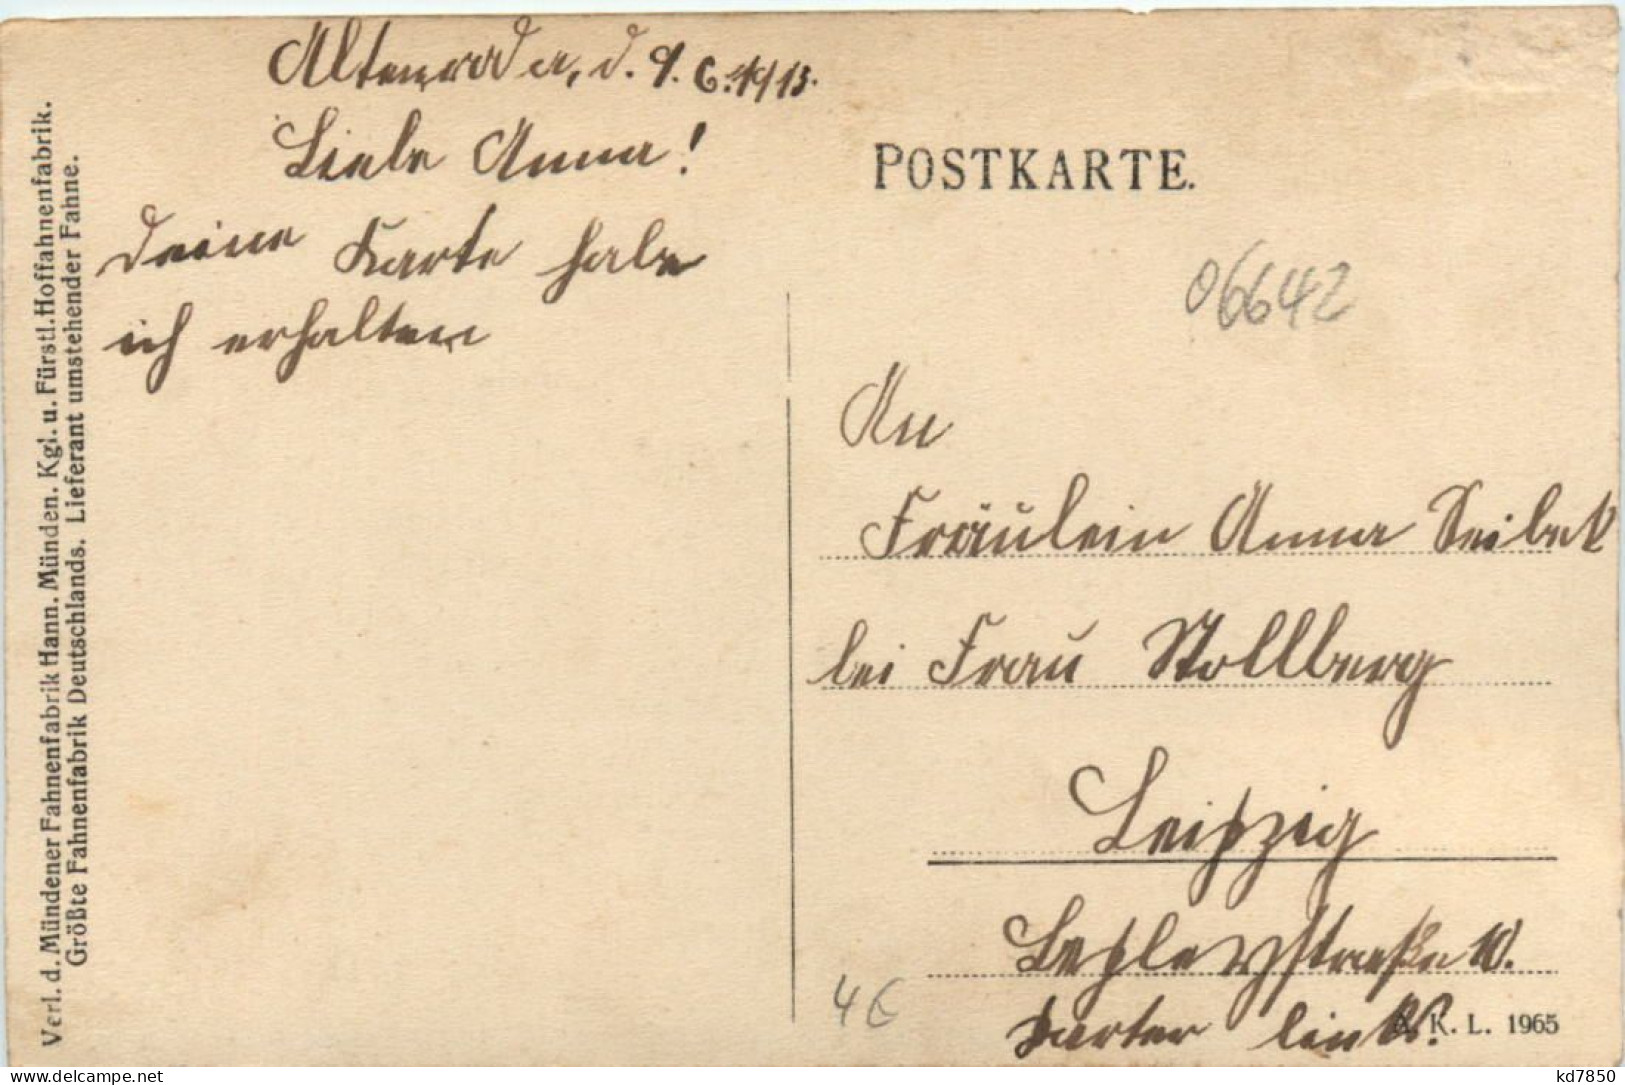 Altenroda, d. 9. 6. 1913.
Liebe Anna!
Deine Karte habe
ich erhalten
Verl. d. Mündener Fahnenfabrik Hann. Münden. Kgl. u. Fürstl. Hoffahnenfabrik.
Größte Fahnenfabrik Deutschlands. Lieferant umstehender Fahne.
POSTKARTE.
06642
An
Fräulein Anna Seibek
bei Frau Stollberg
Leipzig
10.
Parter links.
4€
K. L. 1965
kd7850